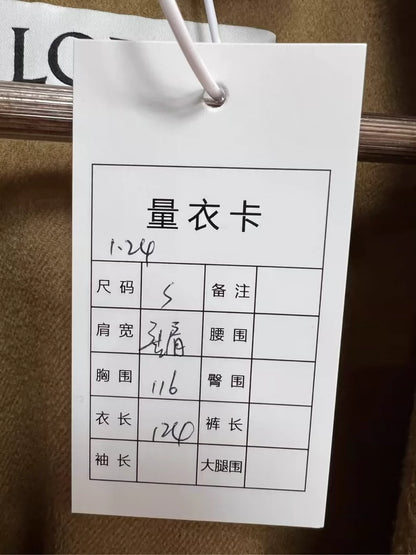 LO
量衣卡
1.24
尺码 S 备注
肩宽 连肩 腰围
胸围 116 臀围
衣长 124 裤长
袖长 大腿围